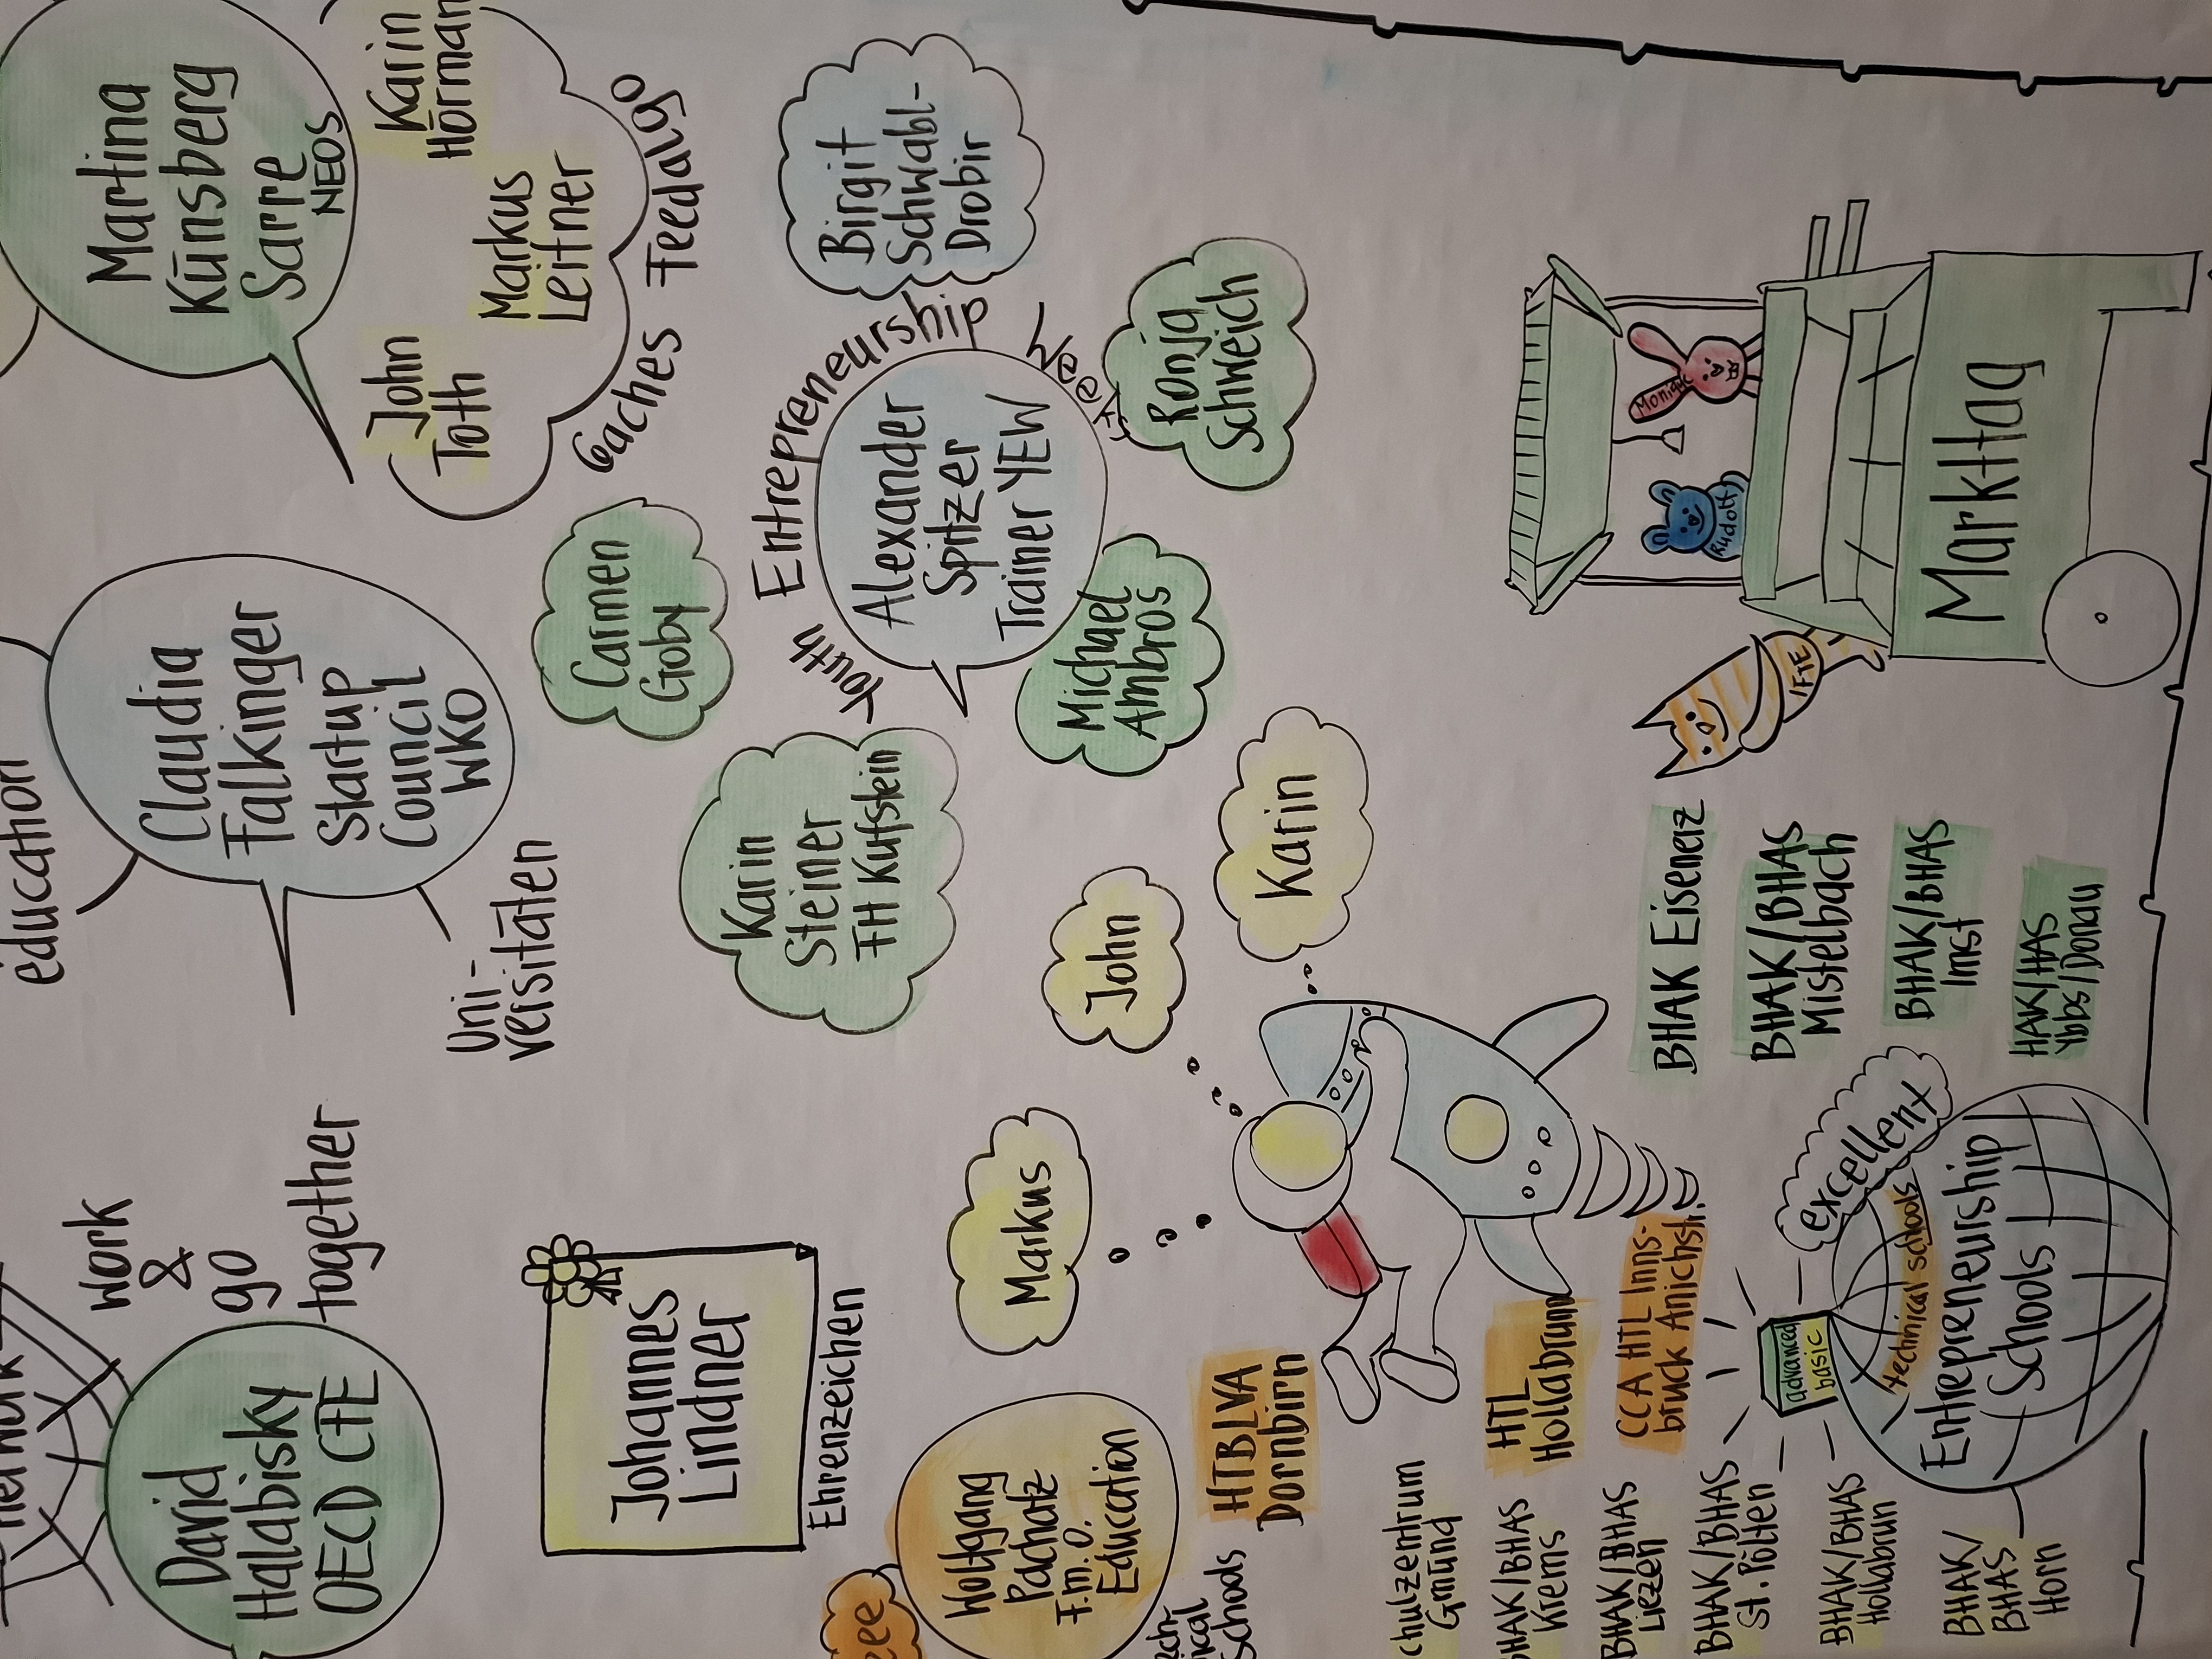 work
&
go
together
David
Halabisky
OECD CFE
education
Claudia
Falkinger
Startup
Council
WKO
Uni-
versitäten
Martina
Künsberg
Sarre
NEOS
Karin
John
Toth
Markus
Leitner
Gaches Feedalgo
Johannes
Lindner
Ehrenzeichen
Carmen
Goby
Karin
Steiner
FH Kufstein
Youth Entrepreneurship Week
Alexander
Spitzer
Trainer YEW
Birgit
Schwabl-
Drobir
Ronja
Schweich
Michael
Ambros
Markus
John
Karin
Wolfgang
Pachatz
F.M.O.
Education
HTBLVA
Dornbirn
HTL
Hollabrunn
CCA HTL Inns-
bruck Anichstr.
Gmünd
BHAK/BHAS
Krems
BHAK/BHAS
Liezen
BHAK/BHAS
St. Pölten
BHAK/BHAS
Hollabrun
BHAK/
BHAS
Horn
advanced
basic
excellent
technical schools
Entrepreneurship
Schools
BHAK Eisenerz
BHAK/BHAS
Mistelbach
BHAK/BHAS
Imst
HAK/HAS
Ybbs/Donau
IFTE
Rudolf
Monique
Markttag